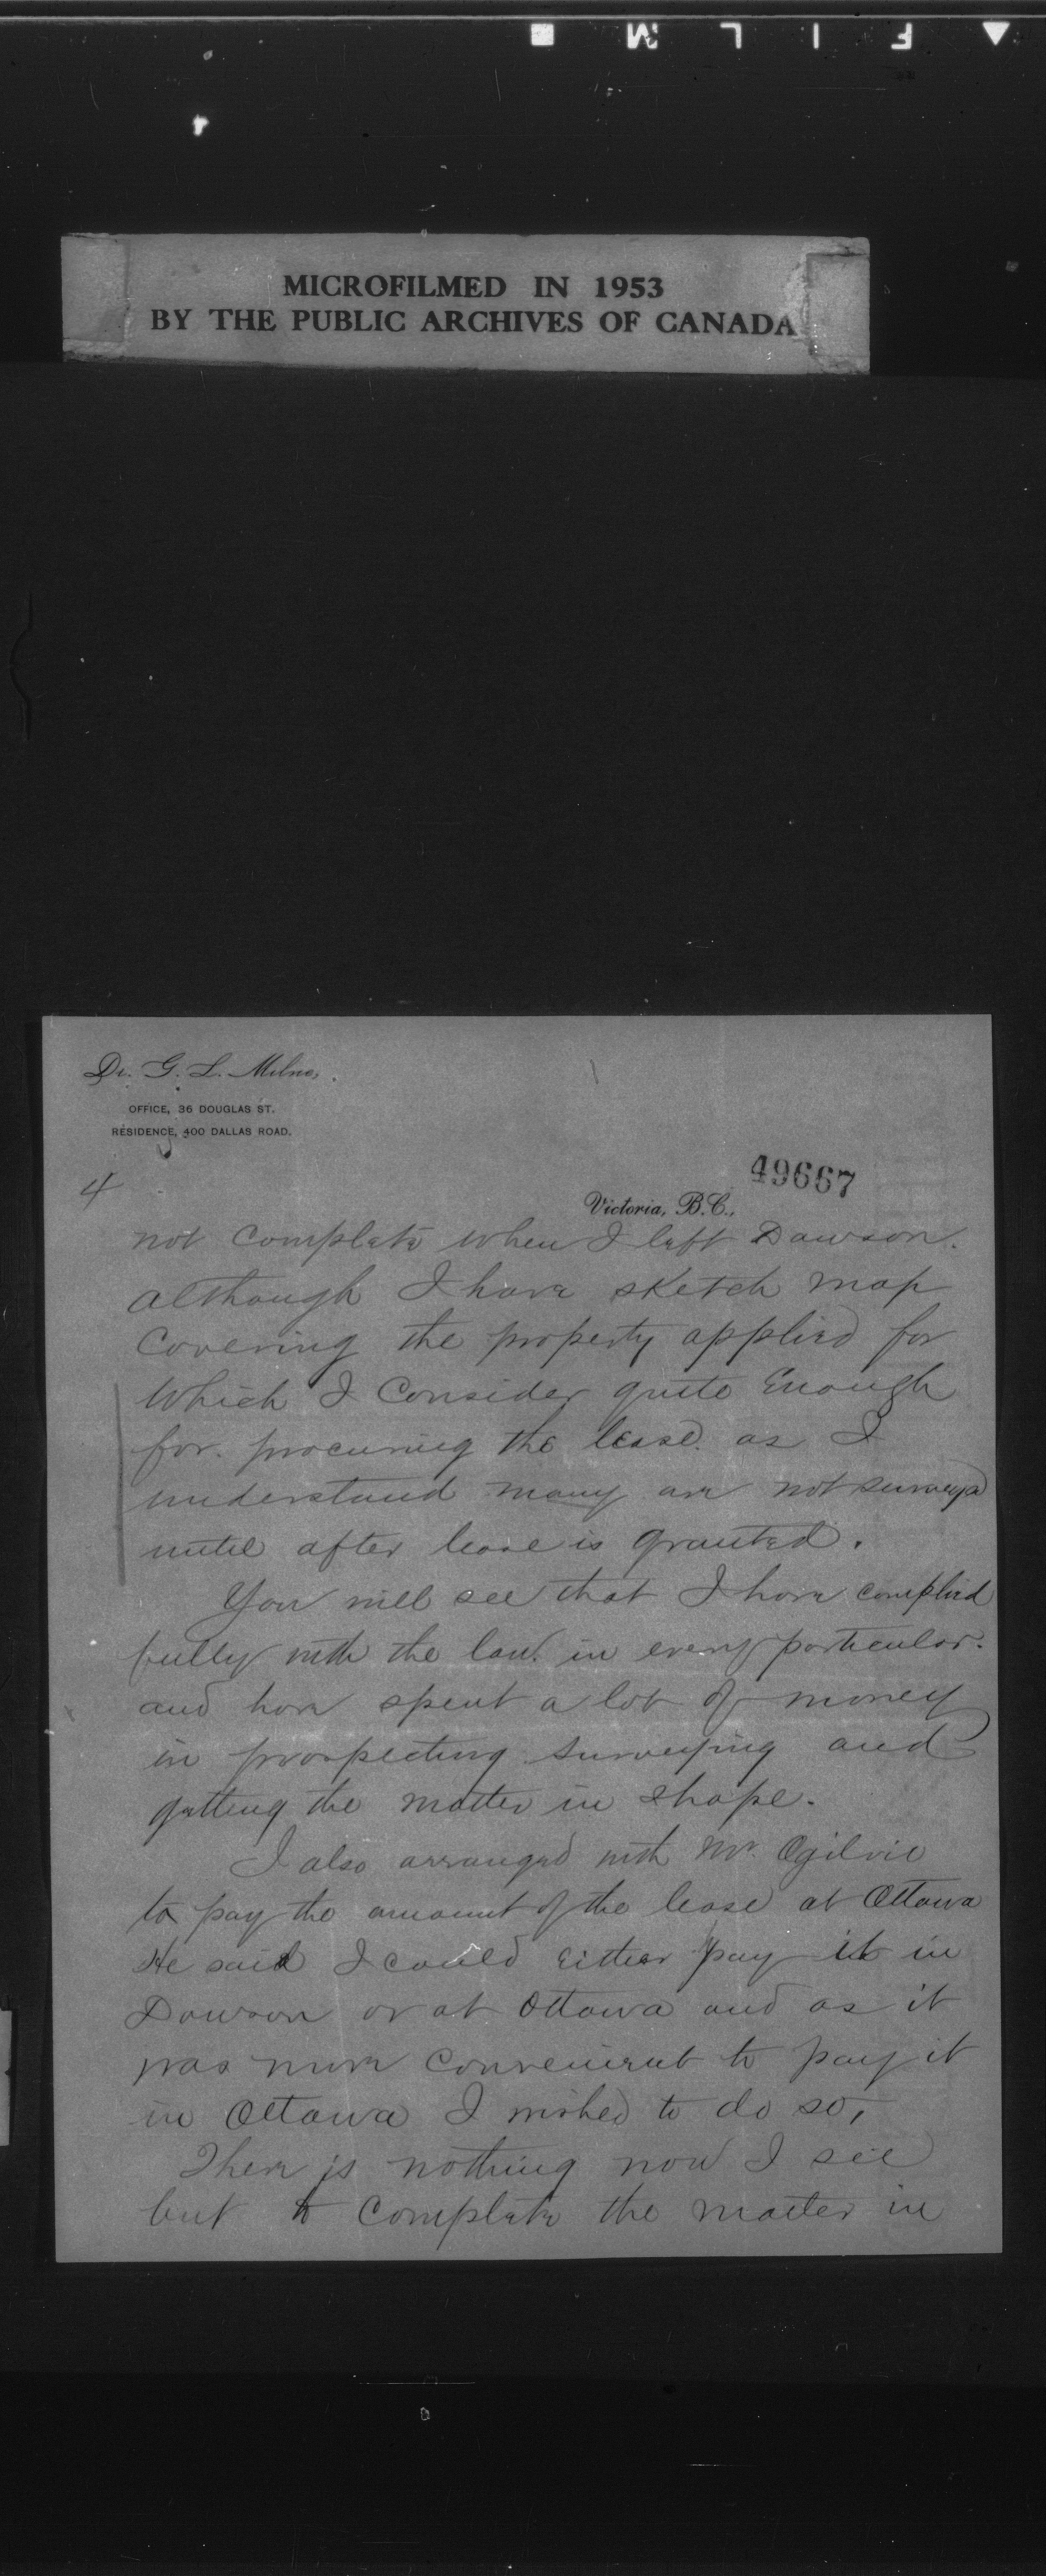 FILM
MICROFILMED IN 1953
BY THE PUBLIC ARCHIVES OF CANADA
Dr. G. L. Milne,
OFFICE, 36 DOUGLAS ST.
RESIDENCE, 400 DALLAS ROAD.
49667
4
Victoria, B.C.,
not complete when I left Dawson.
although I have sketch map
covering the property applied for
which I consider quite enough
for procuring the lease. as I
understand many are not surveyd
until after lease is granted.
You will see that I have complied
fully with the law in every particular.
and have spent a lot of money
in prospecting surveying and
getting the matter in shape.
I also arranged with Mr. Ogilvie
to pay the amount of the lease at Ottawa
He said I could either pay it in
Dawson or at Ottawa and as it
was more convenient to pay it
in Ottawa I wished to do so,
There is nothing now I see
but to complete the matter in